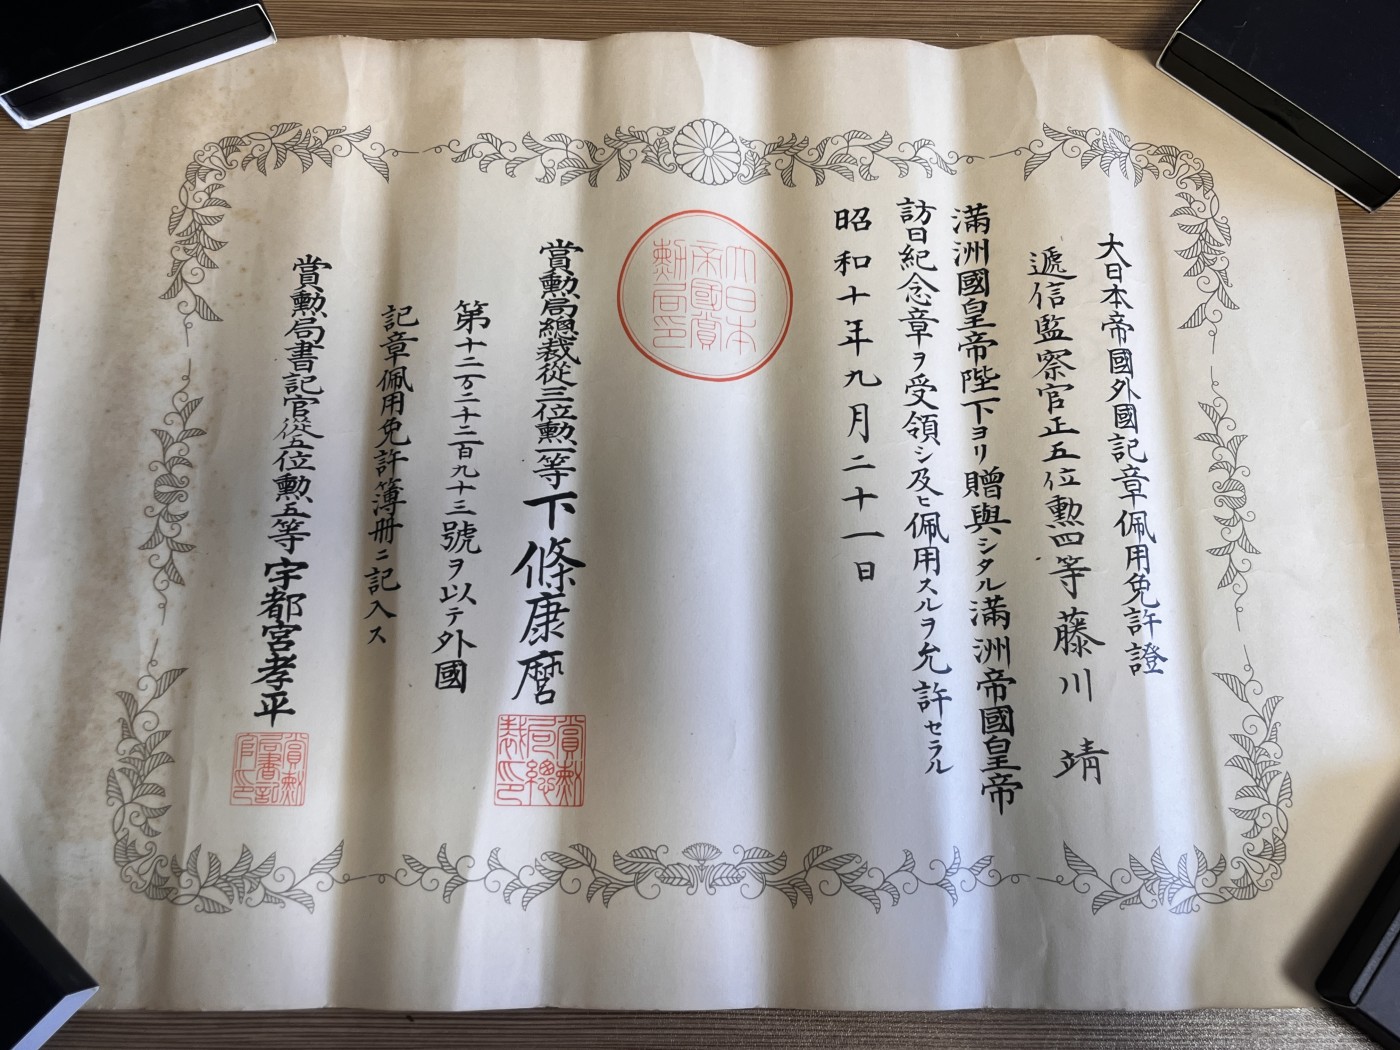 大日本帝國外國記章佩用免許證
遞信監察官正五位勲四等藤川靖
滿洲國皇帝陛下ヨリ贈與シタル滿洲帝國皇帝
訪日紀念章ヲ受領シ及ヒ佩用スルヲ允許セラル
昭和十年九月二十一日
大日本
帝國賞
勲局印
賞勲局總裁從三位勲一等下條康麿
賞勲
局總
裁印
第十二万二十二百九十三號ヲ以テ外國
記章佩用免許簿册ニ記入ス
賞勲局書記官從五位勲五等宇都宮孝平
賞勲
局書記
官印